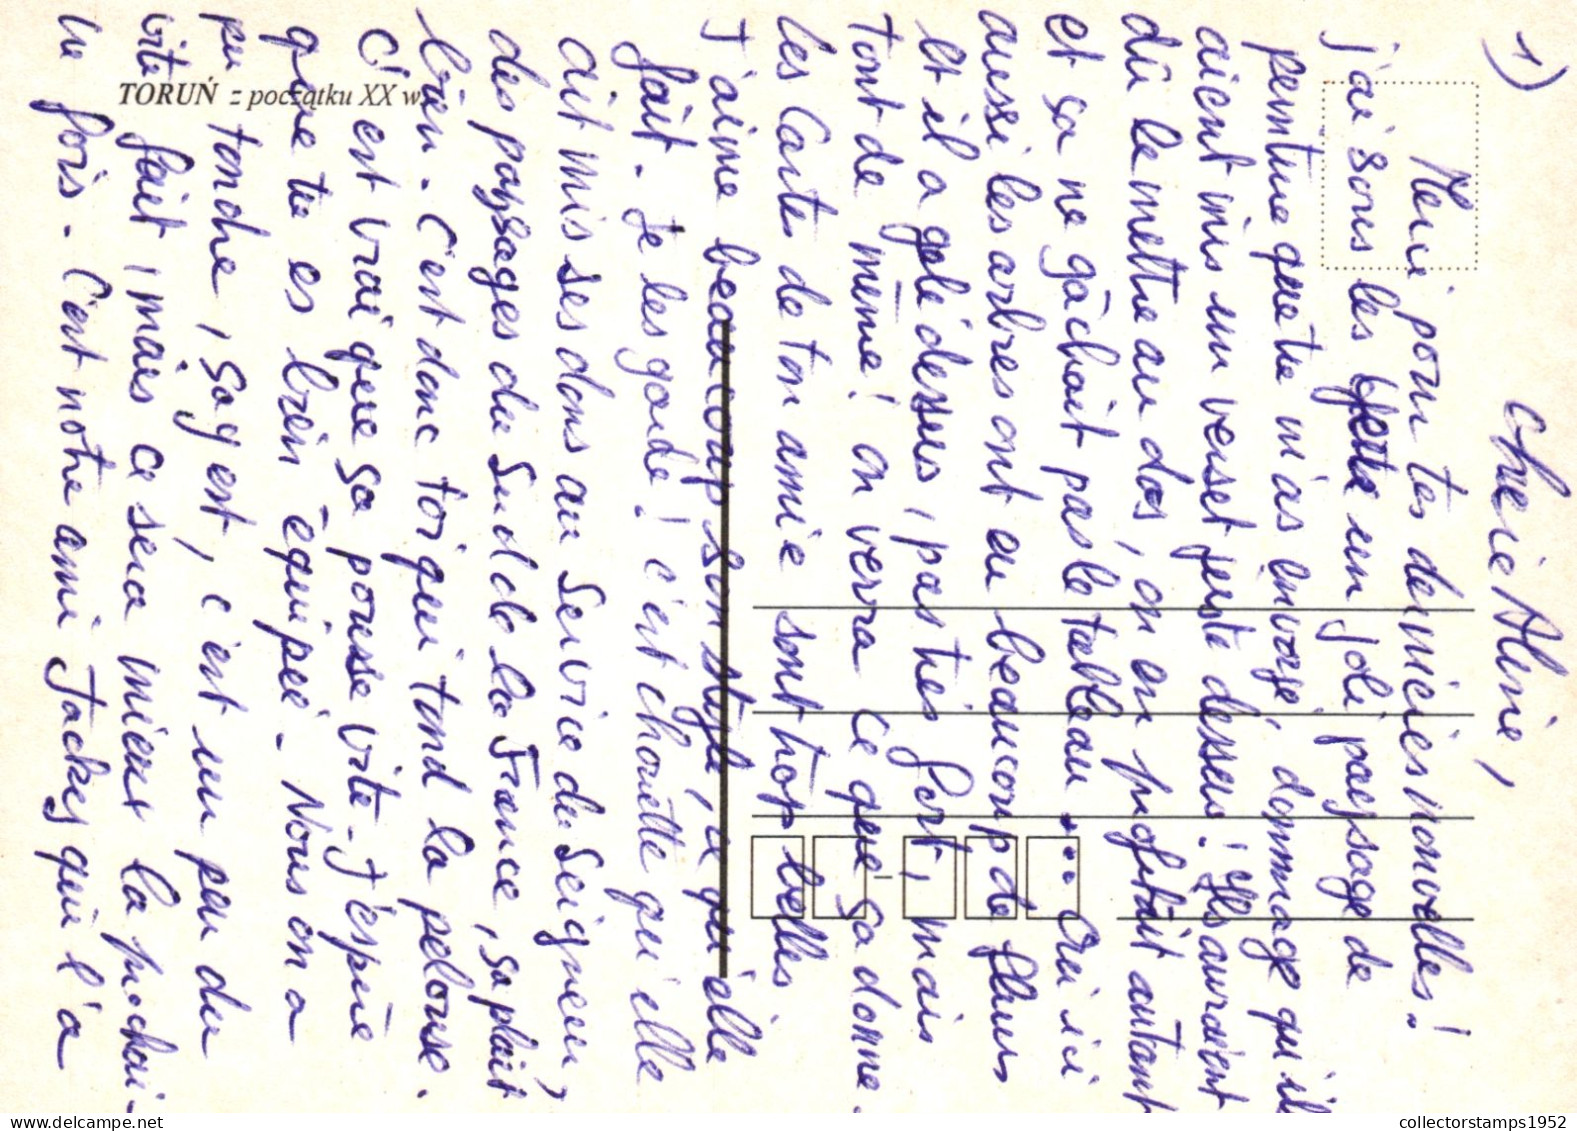 1)
Chère Aline,
Merci pour tes dernières nouvelles!
j'ai sous les yeux un joli paysage de
peinture que tu m'as envoyé, dommage qu'ils
aient mis un verset juste dessus! Ils auraient
dû le mettre au dos, on en profitait autant
et ça ne gâchait pas le tableau... Oui ici
aussi les arbres ont eu beaucoup de fleurs
et il a gelé dessus, pas très fort, mais
tout de même! on verra ce que ça donne.
les cartes de ton amie sont trop belles
J'aime beaucoup son style, ce qu'elle
fait. Je les garde! c'est chouette qu'elle
ait mis ses dons au Service du Seigneur,
des paysages du Sud de la France, ça plaît
bien. C'est donc toi qui tond la pelouse.
C'est vrai que ça pousse vite. J'espère
que tu es bien équipée. Nous on a
pu tondre, ça y est, c'est un peu du
vite fait, mais ce sera mieux la prochai-
ne fois. C'est notre ami Jackey qui l'a
TORUŃ z początku XX w.
collectorstamps1952